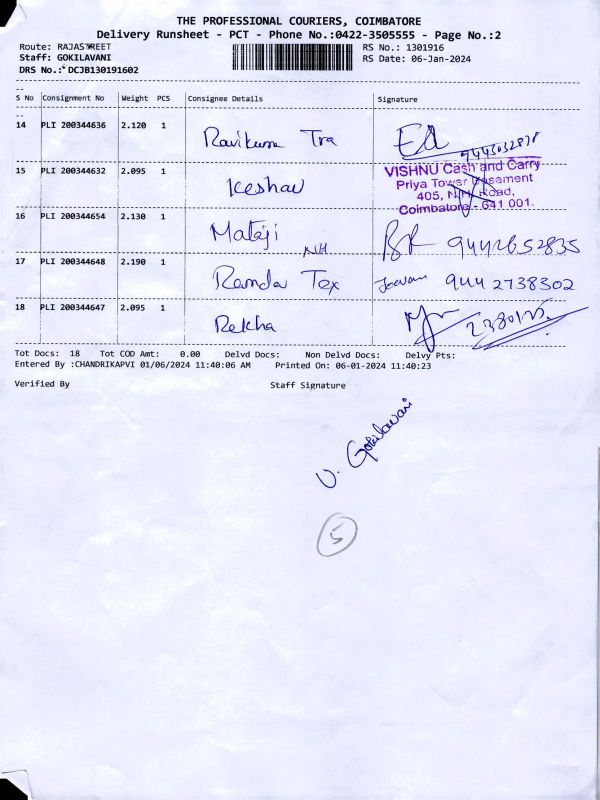 THE PROFESSIONAL COURIERS, COIMBATORE
Delivery Runsheet - PCT - Phone No.:0422-3505555 - Page No.:2
Route: RAJASTREET
Staff: GOKILAVANI
DRS No.: DCJB130191602
RS No.: 1301916
RS Date: 06-Jan-2024
S No Consignment No Weight PCS Consignee Details Signature
14 PLI 200344636 2.120 1 Ravikumar Tra 9443032878
15 PLI 200344632 2.095 1 Keshav
VISHNU Cash and Carry
Priya Tower Basement
405, N.H. Road,
Coimbatore - 641 001.
16 PLI 200344654 2.130 1 Mataji NH 9442652835
17 PLI 200344648 2.190 1 Randa Tex Jeevan 9442738302
18 PLI 200344647 2.095 1 Rekha 2380125
Tot Docs: 18 Tot COD Amt: 0.00 Delvd Docs: Non Delvd Docs: Delvy Pts:
Entered By :CHANDRIKAPVI 01/06/2024 11:40:06 AM Printed On: 06-01-2024 11:40:23
Verified By Staff Signature
V. Gokilavani
5